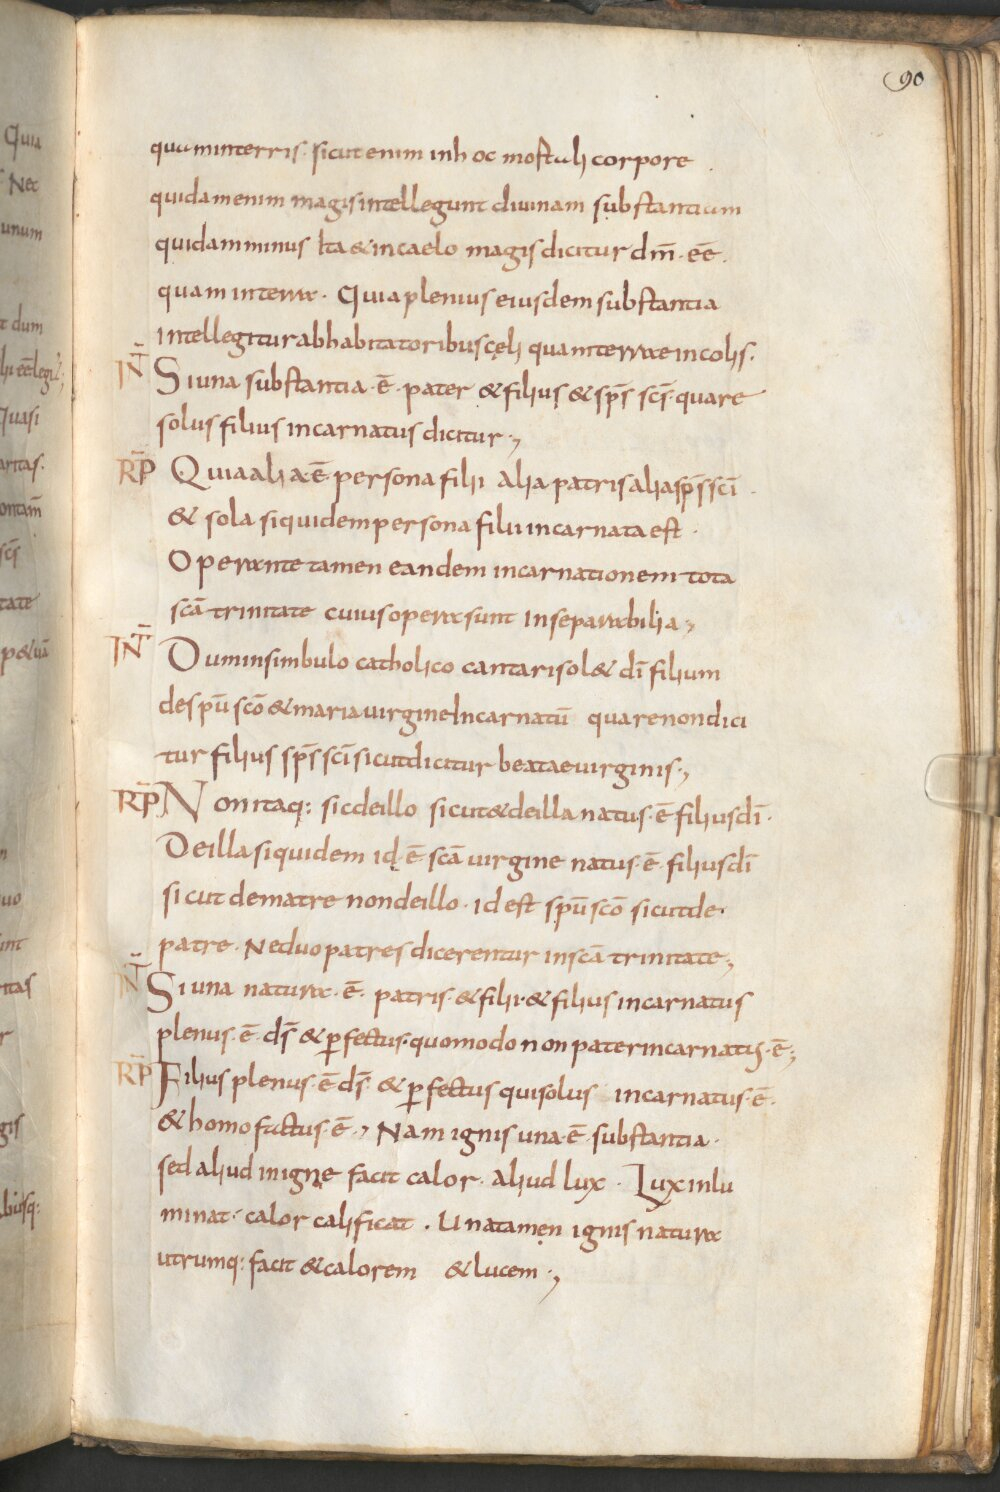 90
quam in terris. sicut enim in hoc mortali corpore
quidam enim magis intellegunt diuinam substantiam
quidam minus Ita & in caelo magis dicitur dm̄ · eē.
quam in terra · Quia plenius eiusdem substantia
intellegitur ab habitatoribus cęli quam terrae incolis.
INT̄ Si una substantia · ē · pater & filius & sps̄ scs̄ · quare
solus filius incarnatus dicitur ·,
RP̄ Quia alia · ē · persona filii alia patris alia sps̄ scī
& sola siquidem persona filii incarnata est ·
Operante tamen eandem incarnationem tota
scā trinitate cuius opera sunt inseparabilia ,
INT̄ Dum in simbulo catholico cantari sol& dī filium
de spū scō & maria uirgine Incarnatū quare non dici
tur filius sps̄ scī sicut dicitur beatae uirginis ·,
RP̄ Non itaq: sic de illo sicut & de illa natus · ē filius dī ·
De illa siquidem id · ē scā uirgine natus · ē · filius dī
sicut de matre non de illo · id est spū scō sicut de ·
patre · Ne duo patres dicerentur in scā trinitate ;
INT̄ Si una natura · ē · patris · & filii · & filius incarnatus
plenus · ē · ds̄ & perfectus · quomodo non pater incarnatus · ē ;
RP̄ Filius plenus · ē ds̄ · & perfectus qui solus incarnatus · ē ·
& homo factus · ē ·, Nam ignis una · ē · substantia ·
sed aliud in igne facit calor · aliud lux · Lux inlu
minat · calor calificat · Una tamen ignis natura
utrumq: facit & calorem & lucem ·,